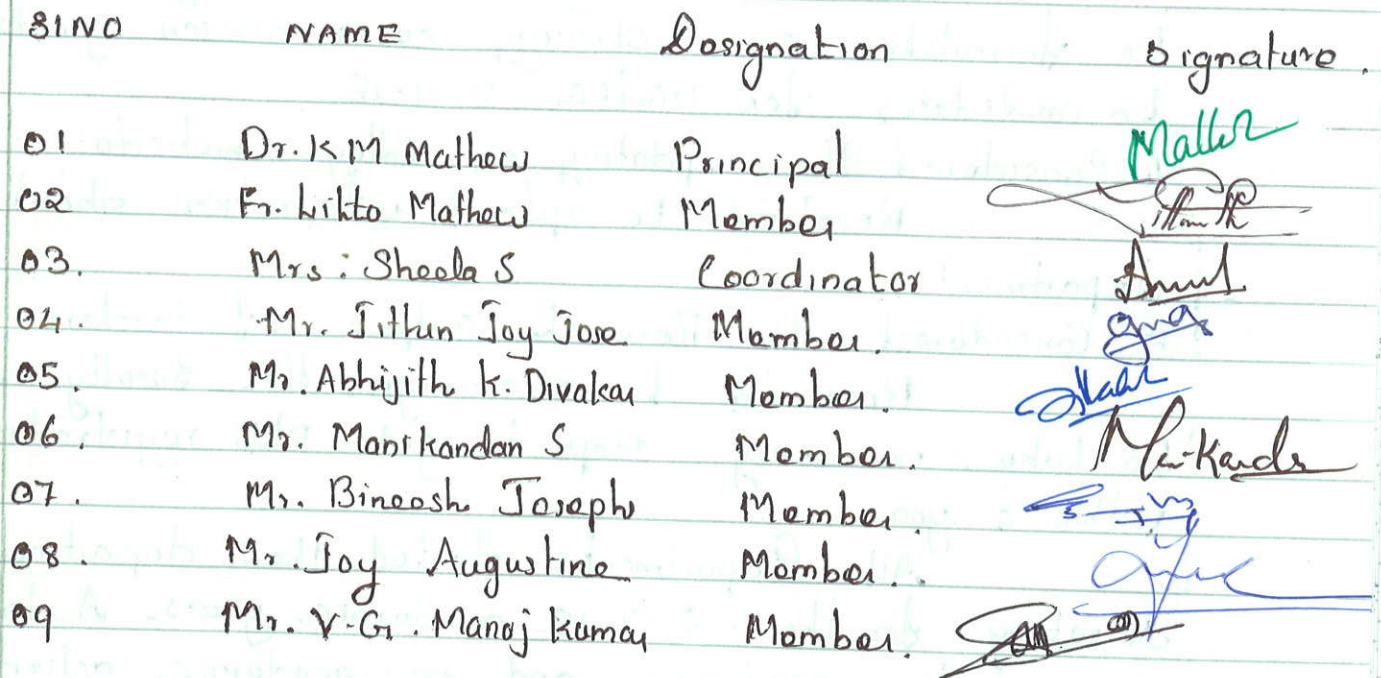 SI NO NAME Designation Signature.
01 Dr. K M Mathew Principal
02 Fr. Likto Mathew Member
03. Mrs: Sheela S Coordinator
04. Mr. Jithin Joy Jose Member.
05. Mr. Abhijith K. Divakar Member.
06. Mr. Manikandan S Member.
07. Mr. Bineesh Joseph Member.
08. Mr. Joy Augustine Member.
09 Mr. V.G. Manoj Kumar Member.